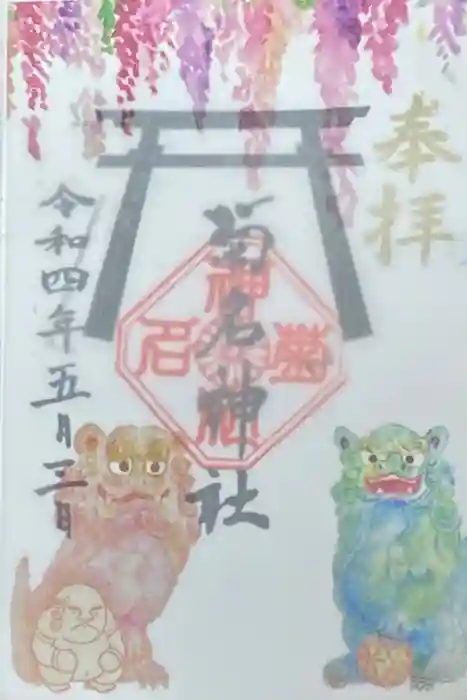 奉拝
菊名神社
菊名神社
令和四年五月三日